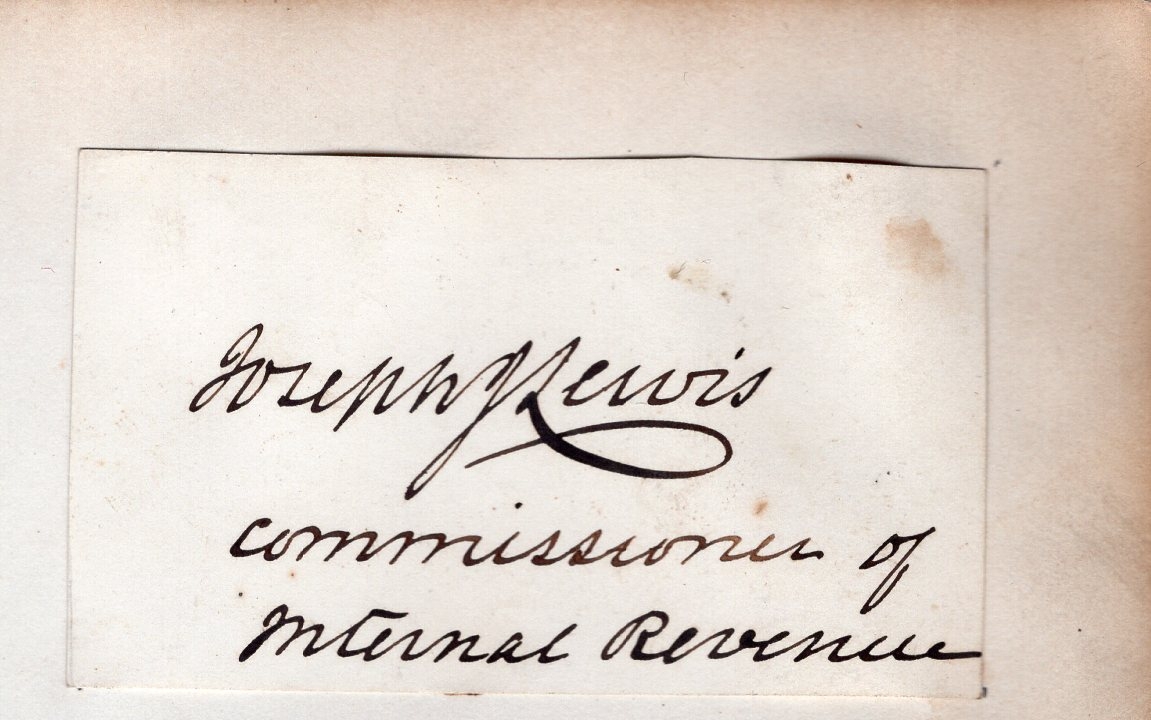 Joseph J Lewis
Commissioner of
Internal Revenue